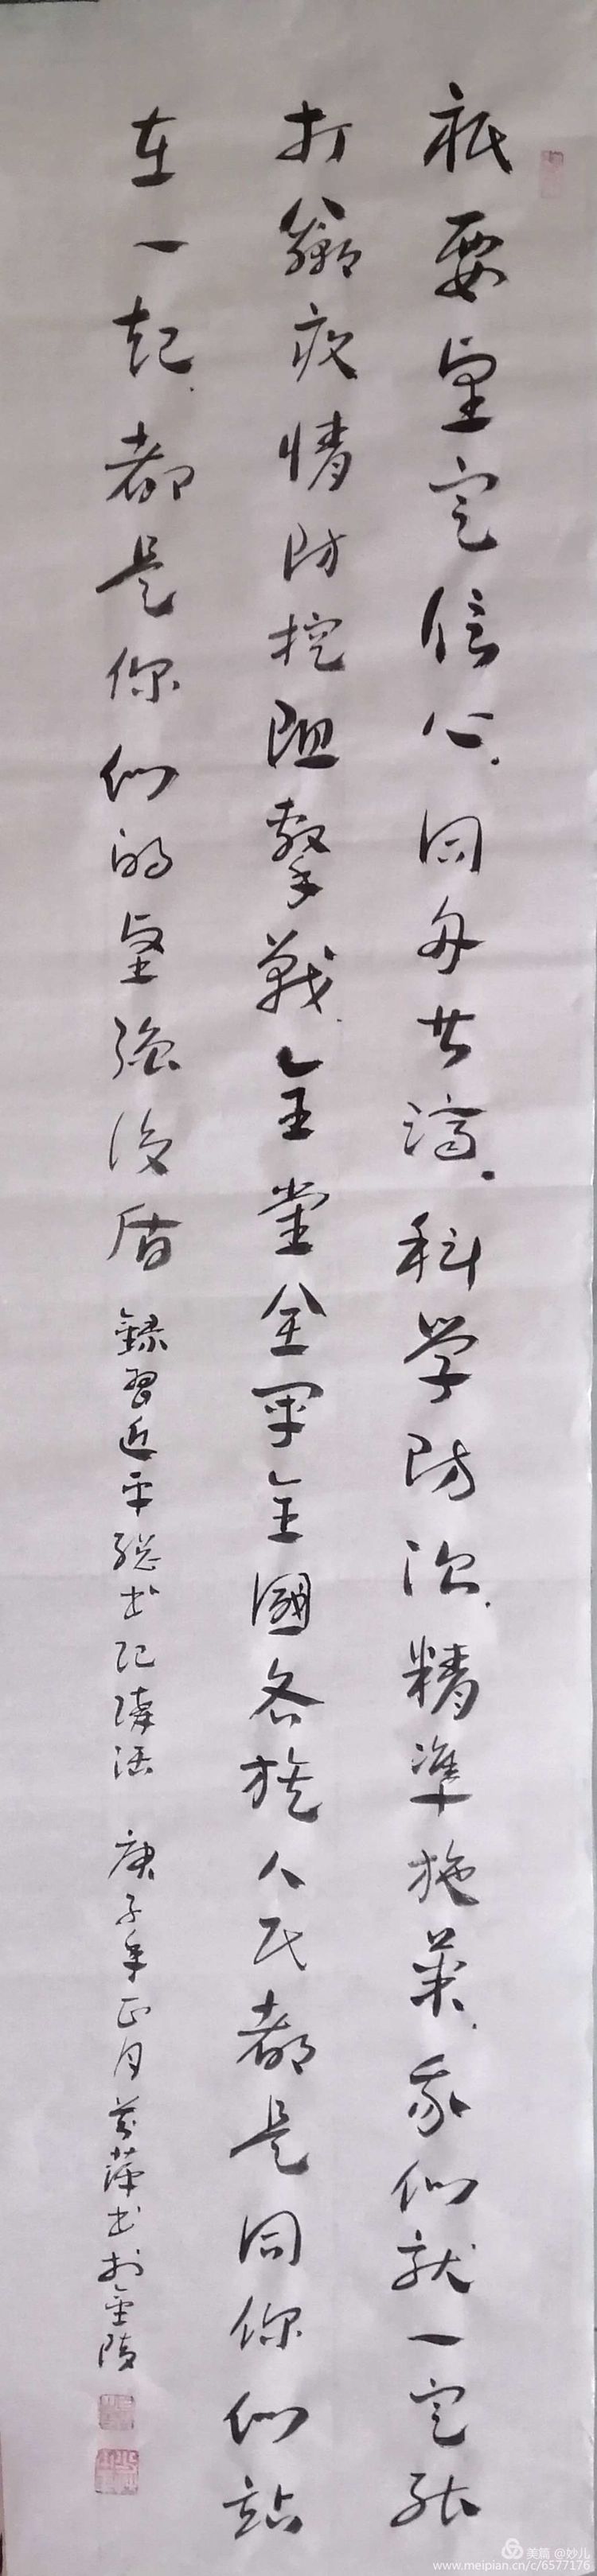 祇要坚定信心.同舟共济.科学防治.精準施策.我们就一定能
打赢疫情防控阻擊战.全党全军全國各族人民都是同你们站
在一起.都是你们的坚强後盾
録習近平總书记講话 庚子年正月 书於金陵
美篇 @妙儿
www.meipian.cn/c/6577176